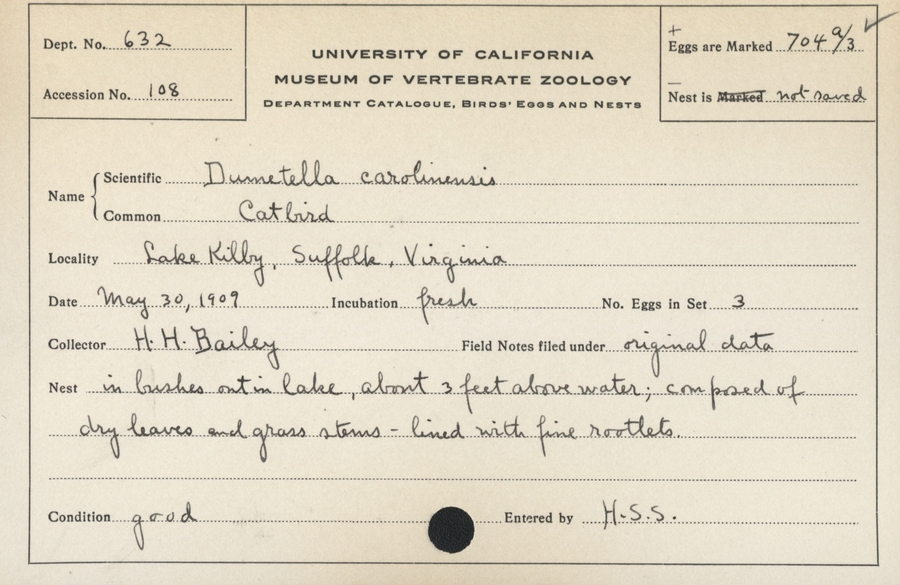 Dept. No. 632
Accession No. 108
UNIVERSITY OF CALIFORNIA
MUSEUM OF VERTEBRATE ZOOLOGY
DEPARTMENT CATALOGUE, BIRDS' EGGS AND NESTS
+
Eggs are Marked 704 a/3 ✓
—
Nest is Marked not saved
Name { Scientific Dumetella carolinensis
Common Catbird
Locality Lake Kilby, Suffolk, Virginia
Date May 30, 1909 Incubation fresh No. Eggs in Set 3
Collector H. H. Bailey Field Notes filed under original data
Nest in bushes out in lake, about 3 feet above water; composed of
dry leaves and grass stems - lined with fine rootlets.
Condition good Entered by H.S.S.